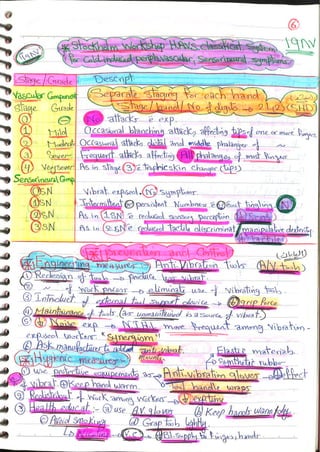 6
19NV
* Stockholm Workshop HAVs classification system
for Cold-induced peripheral vascular, Sensorineural symptoms
Stage / Grade Descript
Vascular Component Separate staging for each hand
Stage Grade Stage / hand / No of digits
0 ⊖ No attacks
1 Mild Occasional blanching attacks affecting tips of one or more fingers
2 Moderate Occasional attacks distal and middle phalanges of ~
3 Severe Frequent attacks affecting All phalanges of most fingers
4 Very severe As in stage 3 & trophic skin changes (tips)
Sensorineural Comp.
0SN Vibrat. exposed. No symptoms
1SN Intermittent or persistent Numbness & tingling
2SN As in 1SN & reduced sensory perception
3SN As in 2SN & reduced tactile discriminat. manipulative dexterity
prevention and Control
* Engineering measures: Anti Vibration tools (A/V tools)
1) Redesign of tools → produce less vibrat.
2) ~ of work process → eliminate use of vibrating tools
3) Introduct. of external tool support device → grip force
4) Maintenance of tools (as unmaintained is a source of vibrat.)
5) Noise exp → NIHL more frequent among vibration-
exposed workers "Synergism"
6) Ask manufacturer to
Elastic materials
Synthetic rubber
* Hygienic measures
1) use protective equipements as Anti-vibration gloves effect
Keep hand warm. tool handle wraps
2) Redistribut. of work among workers → exp time
3) Health educat. → a) use A.V gloves b) Keep hands warm/dry
c) Avoid smoking d) Grasp tools lightly
Bl. supply to fingers, hands